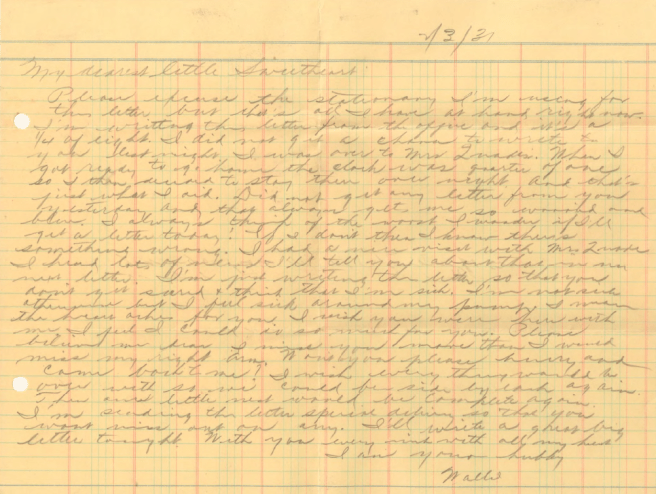 2/3/31
My dearest little Sweetheart:
Please excuse the stationary I'm using for
this letter but that's all I have at hand right now.
I'm writing this letter from the office and it's a
1/4 of eight. I did not get a chance to write to
you last night. I was over to Mrs When I
got ready to go home the clock was quarter of one
so I then decided to stay there over night, and that's
just what I did. Did not get any letter from you
yesterday and that always gets me so worried and
blue. I always think of the worst. I wonder if I'll
get a letter today! If I don't then I know there's
something wrong. I had a nice visit with Mr.
I heard lots of news. I'll tell you about that in my
next letter. I'm just writing this letter so that you
don't get scared & think that I'm sick. I'm not sick
other but I feel sick around my I mean
the aches for you. I wish you were here with
me. I feel I could do so much for you. Please
believe me dear I miss you more than I would
miss my right arm. Won't you please hurry and
come back to me! I wish everything would be
over with so we could be side by each again.
Then our little nest would be complete again.
I'm sending this letter special delivery so that you
wont miss out on any. I'll write a great big
letter tonight. With you every and with all my heart
I am your hubby
Walls